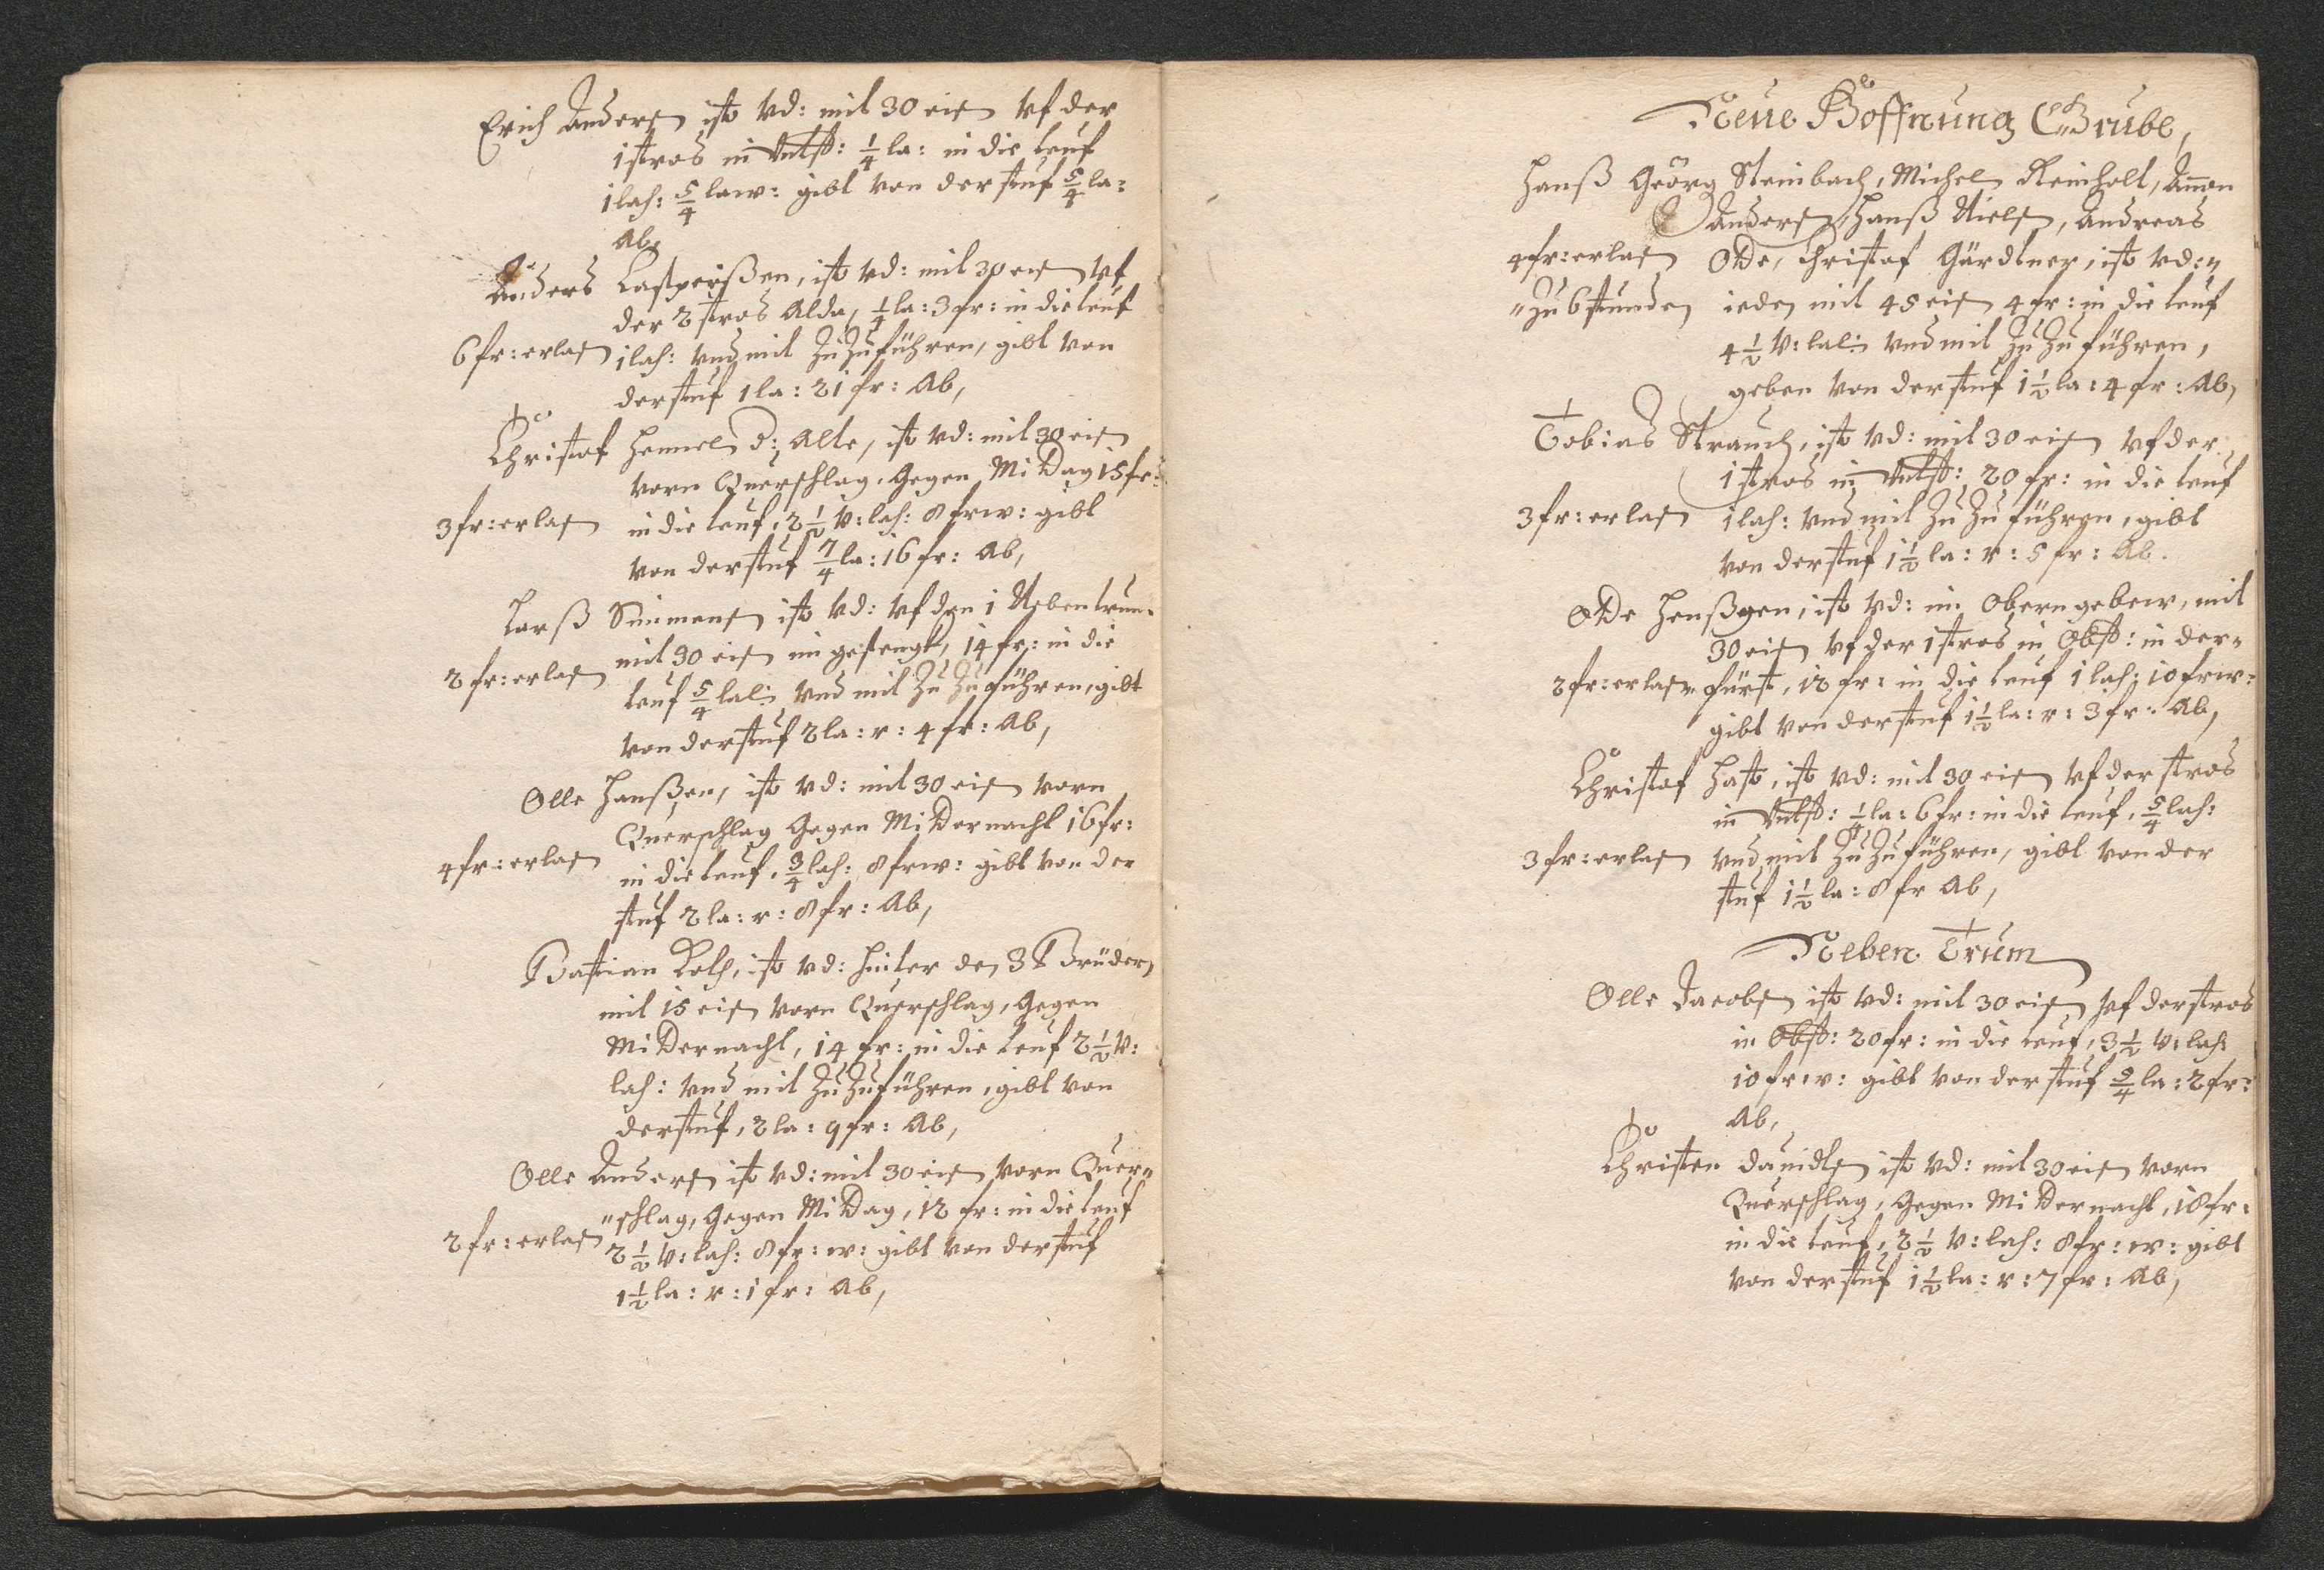 Erich Andersen ist vd: mit 30 eisen vf der
1 stros in vntst: 1/4 la: in die teuf
1 lach: 5/4 la w: gibt von der stuf 5/4 la:
Ab,
Anders Lasperißen, ist vd: mit 30 eisen vf
der 2 stros Alda, 1/4 la: 3 fr: in die teuf
6 fr: erlas 1 lach: vnd mit Zu Zu führen, gibt von
der stuf 1 la: 21 fr: Ab,
Christof Hennel d: Alte, ist vd: mit 30 eisen
vorn Querschlag, Gegen Mi Dag 15 fr:
3 fr: erlas in die teuf, 2 1/2 v: lach: 8 fr w: gibt
von der stuf 7/4 la: 16 fr: Ab,
Larß Simmens ist vd: vf den 1 Neben trum
mit 30 eisen im gesengk, 14 fr: in die
2 fr: erlas teuf 5/4 lal: vnd mit Zu Zu führen, gibt
von der stuf 2 la: r: 4 fr: Ab,
Olle Hanßen, ist vd: mit 30 eisen vorn
Querschlag Gegen Mi Dernacht 16 fr:
4 fr: erlas in die teuf, 3/4 lach: 8 fr w: gibt von der
stuf 2 la: r: 8 fr: Ab,
Bastian Kolb, ist vd: hinter den 3 Brüdern
mit 15 eisen vorn Querschlag, Gegen
Mi Dernacht, 14 fr: in die teuf 2 1/2 v:
lach: vnd mit Zu Zu führen, gibt von
der stuf, 2 la: 9 fr: Ab,
Olle Anders ist vd: mit 30 eisen vorn Quer=
=schlag, Gegen Mi Dag, 12 fr: in die teuf
2 fr: erlas 2 1/2 v: lach: 8 fr: w: gibt von der stuf
1 1/2 la: r: 1 fr: Ab,
Neue Hoffnung Grube,
Hanß Georg Steinbach, Michel Reinholt, Amon
Anders, Hanß Nielsen, Andreas
4 fr: erlas Ode, Christof Gärdtner, ist vd: =
=Zu 6 stunden ieder mit 45 eisen 4 fr: in die teuf
4 1/2 v: lal: vnd mit Zu Zu führen,
geben von der stuf 1 1/2 la: 4 fr: Ab,
Tobias Strauch, ist vd: mit 30 eisen vf der
1 stros in vntst: 20 fr: in die teuf
3 fr: erlas 1 lach: vnd mit Zu Zu führen, gibt
von der stuf 1 1/2 la: r: 5 fr: Ab.
Ode Hanßgen, ist vd: im Obern gebew, mit
30 eisen vf der 1 stros in Obst: in der=
2 fr: erlas fürst, 12 fr: in die teuf 1 lach: 10 fr w:
gibt von der stuf 1 1/2 la: r: 3 fr: Ab,
Christof Hast, ist vd: mit 30 eisen vf der stros
in vntst: 1/4 la: 6 fr: in die teuf, 5/4 lach:
3 fr: erlas vnd mit Zu Zu führen, gibt von der
stuf 1 1/2 la: 8 fr Ab,
Neben Trum
Olle Jacobs ist vd: mit 30 eisen vf der stros
in Obst: 20 fr: in die teuf, 3 1/2 v: lach:
10 fr w: gibt von der stuf 5/4 la: 2 fr:
Ab,
Christen Dauidsen ist vd: mit 30 eisen vorn
Querschlag, Gegen Mi Dernacht, 18 fr:
in die teuf, 2 1/2 v: lach: 8 fr: w: gibt
von der stuf 1 1/2 la: r: 7 fr: Ab,